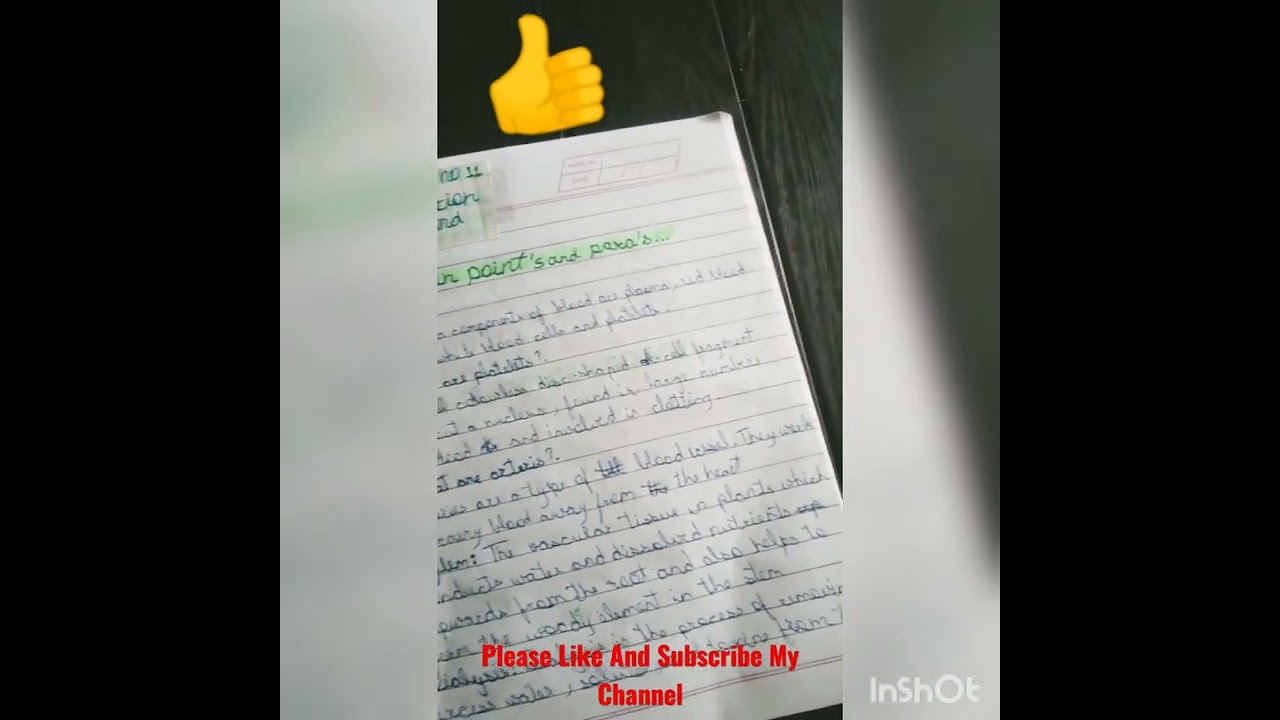 no 11
tion
nd
in point's and para's...
components of blood are plasma, red blood
blood cells and platlets.
are platlets?.
colourless disc-shapid cell fragment
out a nucleus, found in large numbers
and involved in clotting.
are arteris?.
are a type of blood vessel. They work
carry blood away from the heart
lem: The vascular tissue in plants which
nducts water and dissolved nutrients
pwards from the root and also helps to
orm the woody element in the stem
is the process of removin
xcess water, toxins from
Please Like And Subscribe My
Channel
InShOt